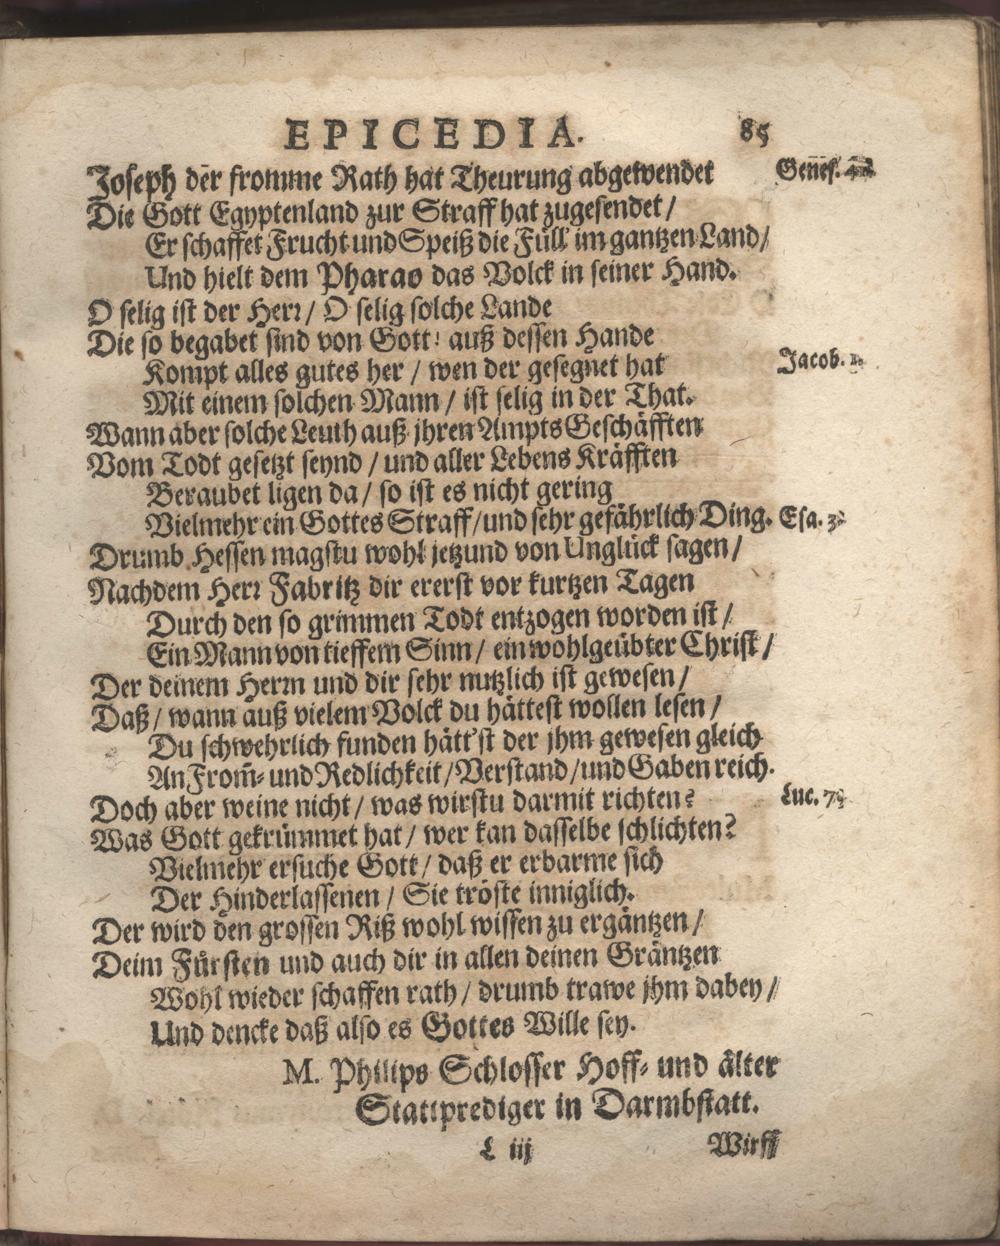 EPICEDIA. 85
Joseph der fromme Rath hat Theurung abgewendet Genes. 42
Die Gott Egyptenland zur Straff hat zugesendet /
Er schaffet Frucht und Speiß die Füll' im gantzen Land /
Und hielt dem Pharao das Volck in seiner Hand.
O selig ist der Herr / O selig solche Lande
Die so begabet sind von Gott: auß dessen Hande
Kompt alles gutes her / wen der gesegnet hat Jacob. 1.
Mit einem solchen Mann / ist selig in der That.
Wann aber solche Leuth auß jhren Ampts Geschäfften
Vom Todt gesetzt seynd / und aller Lebens Kräfften
Beraubet ligen da / so ist es nicht gering
Vielmehr ein Gottes Straff / und sehr gefährlich Ding. Esa. 3.
Drumb Hessen magstu wohl jetzund von Unglück sagen /
Nachdem Herr Fabritz dir ererst vor kurtzen Tagen
Durch den so grimmen Todt entzogen worden ist /
Ein Mann von tieffem Sinn / ein wohlgeübter Christ /
Der deinem Herrn und dir sehr nutzlich ist gewesen /
Daß / wann auß vielem Volck du hättest wollen lesen /
Du schwehrlich funden hätt'st der jhm gewesen gleich
An From̃- und Redlichkeit / Verstand / und Gaben reich.
Doch aber weine nicht / was wirstu darmit richten? Luc. 7.
Was Gott gekrümmet hat / wer kan dasselbe schlichten?
Vielmehr ersuche Gott / daß er erbarme sich
Der Hinderlassenen / Sie tröste inniglich.
Der wird den grossen Riß wohl wissen zu ergäntzen /
Deim Fürsten und auch dir in allen deinen Gräntzen
Wohl wieder schaffen rath / drumb trawe jhm dabey /
Und dencke daß also es Gottes Wille sey.
M. Philips Schlosser Hoff- und älter
Stattprediger in Darmbstatt.
L iij Wirff